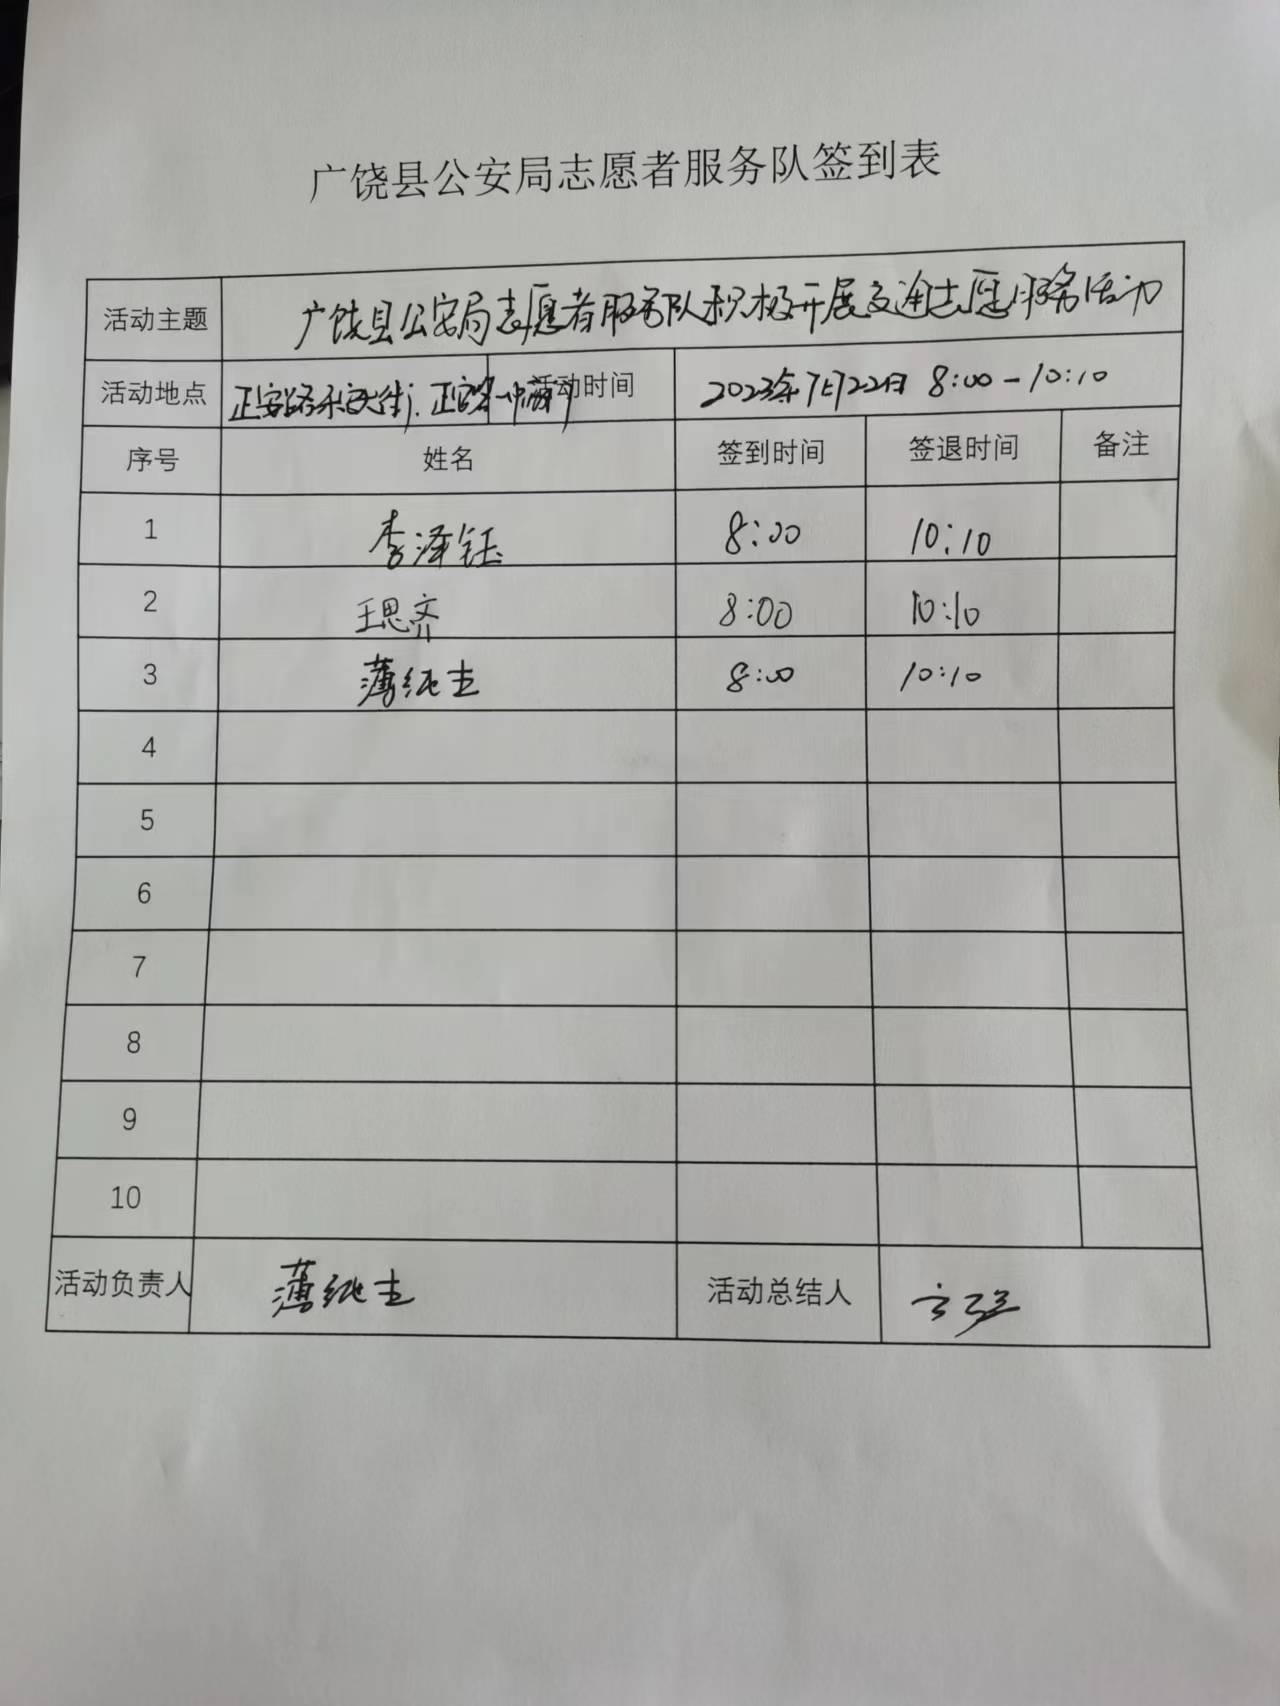 广饶县公安局志愿者服务队签到表
活动主题 广饶县公安局志愿者服务队积极开展交通志愿服务活动
活动地点 正安路 活动时间 2023年7月22日 8:00-10:10
序号 姓名 签到时间 签退时间 备注
1 李泽钰 8:00 10:10
2 王思齐 8:00 10:10
3 薄纯圭 8:00 10:10
4
5
6
7
8
9
10
活动负责人 薄纯圭 活动总结人